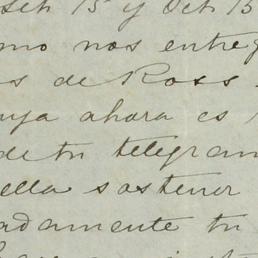 Set 15 y Oct 15
mo nos entreg
s de Ross
uya ahora es
de tu telegram
ella sostener
adamente tu